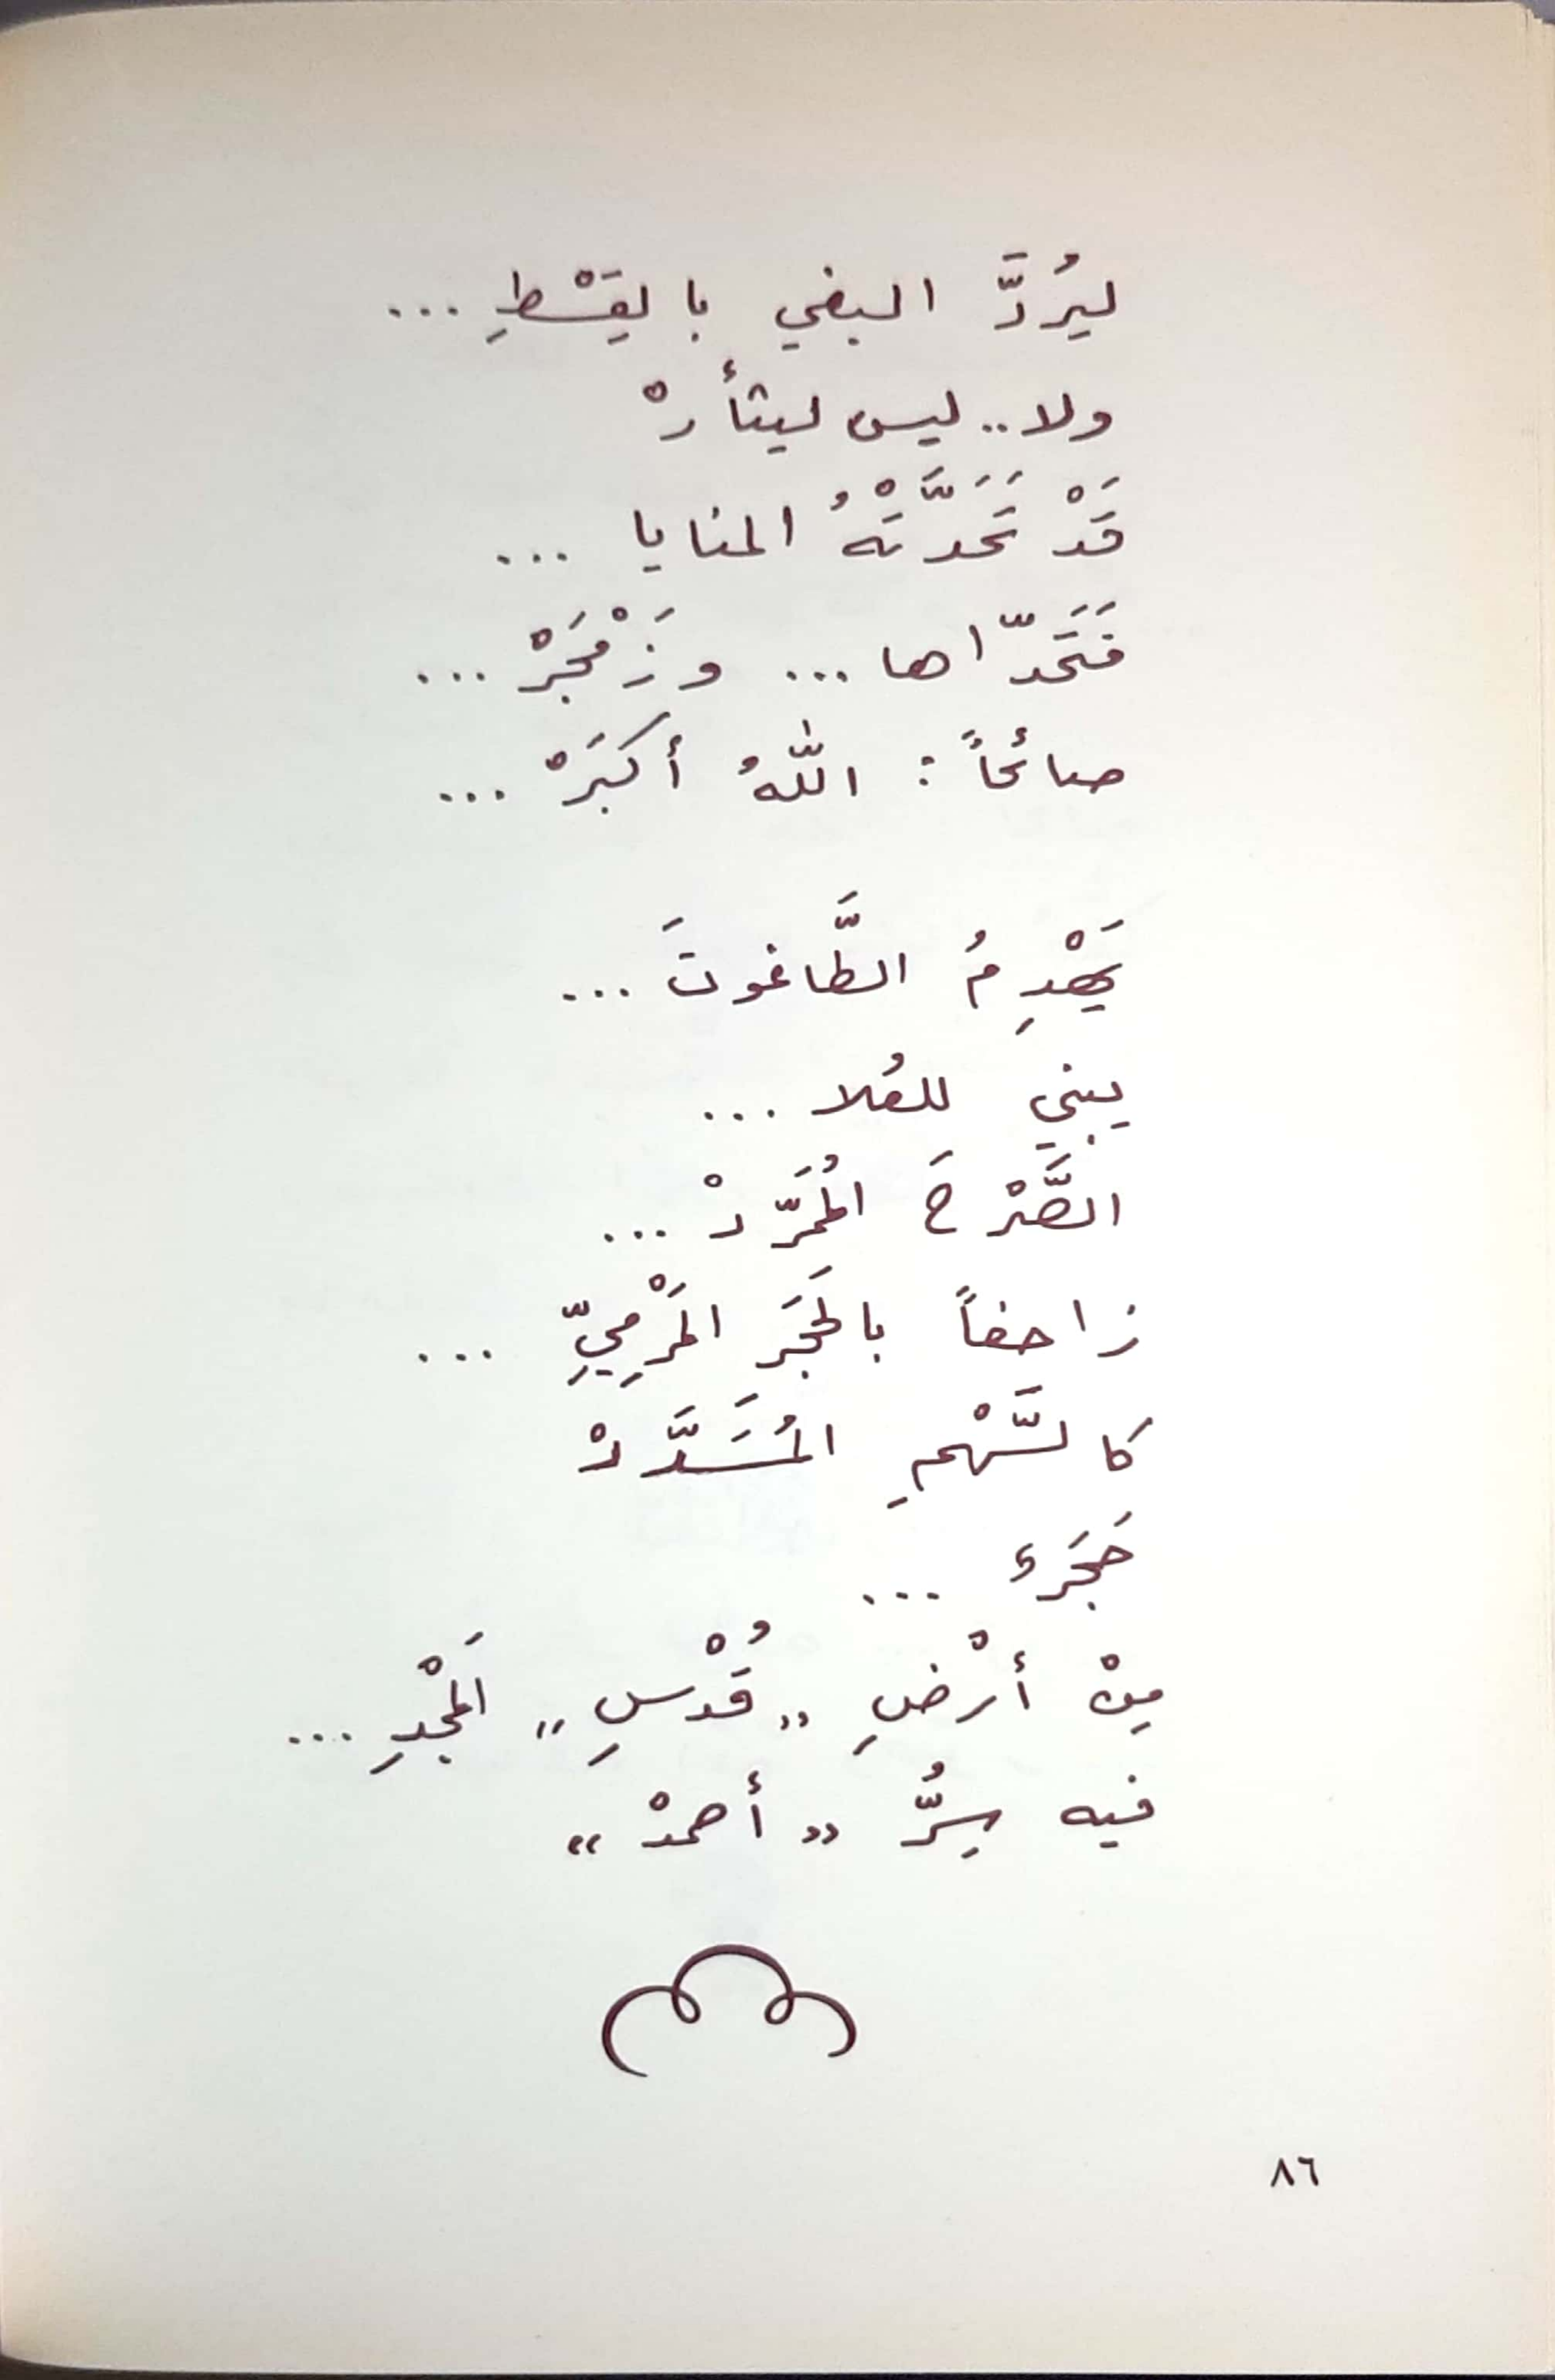 ليُردَّ البغي بالقِسْطِ ...
ولا .. ليس ليثأرْ
قَدْ تَحَدَّتْهُ المنايا ...
فَتَحَدّاها ... وزَمْجَرْ ...
صائحاً : اللّٰهُ أكبَرْ ...
يَهْدِمُ الطَّاغوتَ ...
يبني للعُلا ...
الصَّرْحَ المُمَرَّدْ ...
زاحفاً بالحَجَرِ المَرْمِيِّ ...
كالسَّهْمِ المُسَدَّدْ
حَجَرٌ ...
مِنْ أرْضِ „ قُدْسِ „ المَجْدِ ...
فيه سِرُّ „ أحمدْ “
٨٦